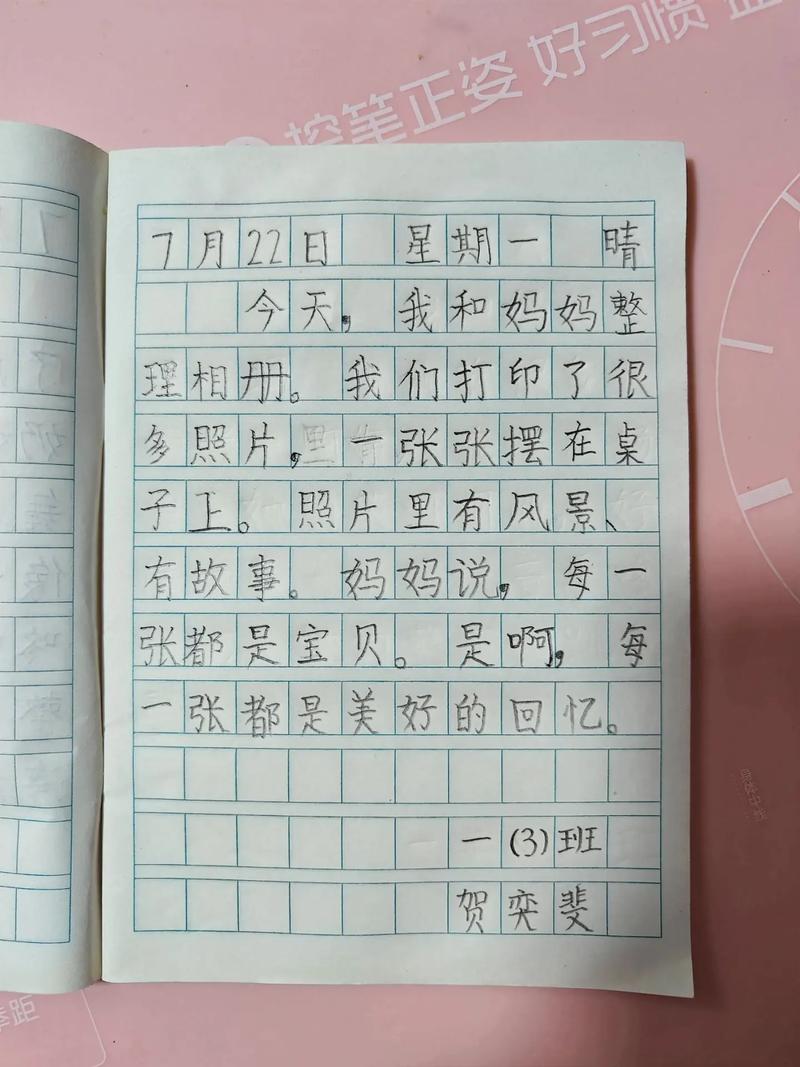 控笔正姿 好习惯
7月22日 星期一 晴
今天，我和妈妈整
理相册。我们打印了很
多照片，一张张摆在桌
子上。照片里有风景、
有故事。妈妈说，每一
张都是宝贝。是啊，每
一张都是美好的回忆。
一(3)班
贺奕斐
距